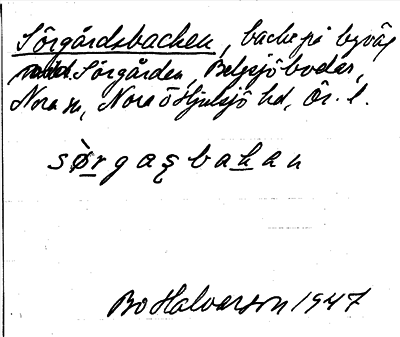 Sörgårdsbacken, backe på byväg
vid Sörgården, Belgsjöbodar,
Nora sn, Nora o Hjulsjö hd, Ör. l.
sø̀rgaʂbakan
Bo Halvarson 1947